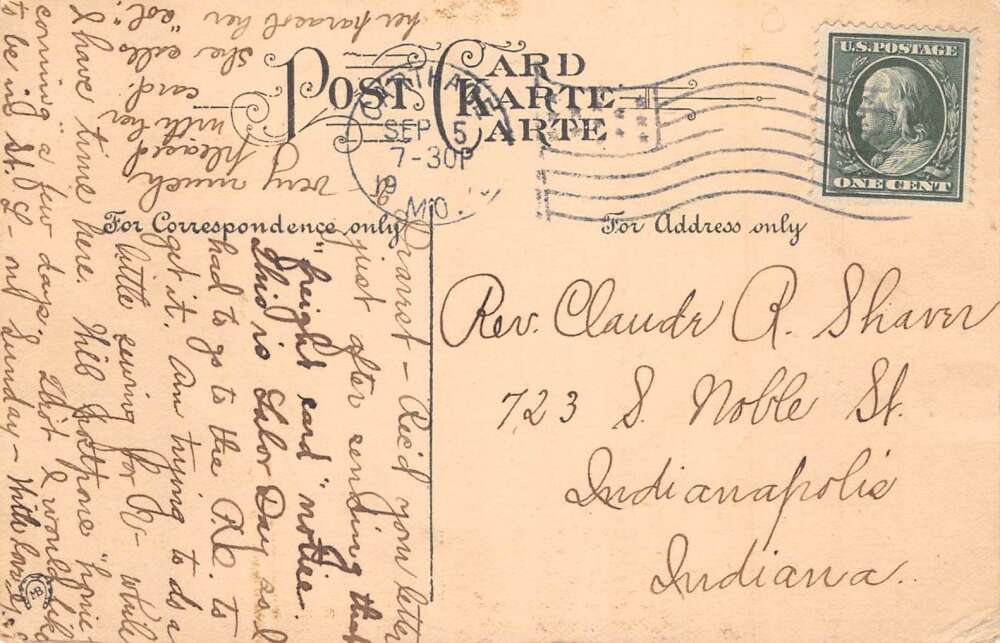 POST CARD
KARTE
CARTE
CARTHAGE
SEP 5
7-30P
19
MO.
U.S. POSTAGE
ONE CENT
For Correspondence only
For Address only
Dearest - Rec'd your letter
just after sending that
"freight card" notice.
This is Labor Day and
had to go to the P.O. to
get it. Am trying to do a
little sewing for B- while
I have time here. Will postpone "home
coming" a few days. Thot I would like
to be in St. L- on Sunday - With love,
very much
pleased
with her
card.
She calls
her parasol her
"sol".
Rev. Claude R. Shaver
723 S. Noble St.
Indianapolis
Indiana.
MB